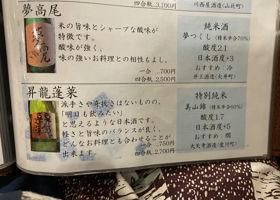 四合瓶 3,100円
川西屋酒造(山北町)
夢高尾
米の旨味とシャープな酸味が
特徴です。
酸味が強く、
味の強いお料理との相性もよし。
一合 700円
四合瓶 2,500円
純米酒
夢つくし(精米歩合70%)
酸度2.1
日本酒度+3
おすすめ 冷
井上酒造(大井町)
昇龍蓬莱
派手さや奇抜さはないものの、
「明日も飲みたい」
と思えるような日本酒です。
軽さと旨味のバランスが良く、
どんなお料理とも合わせることが
出来ます。
一合 750円
四合瓶 2,700円
特別純米
美山錦(精米歩合60%)
酸度1.7
日本酒度+5
おすすめ 燗
大矢孝酒造(愛川町)